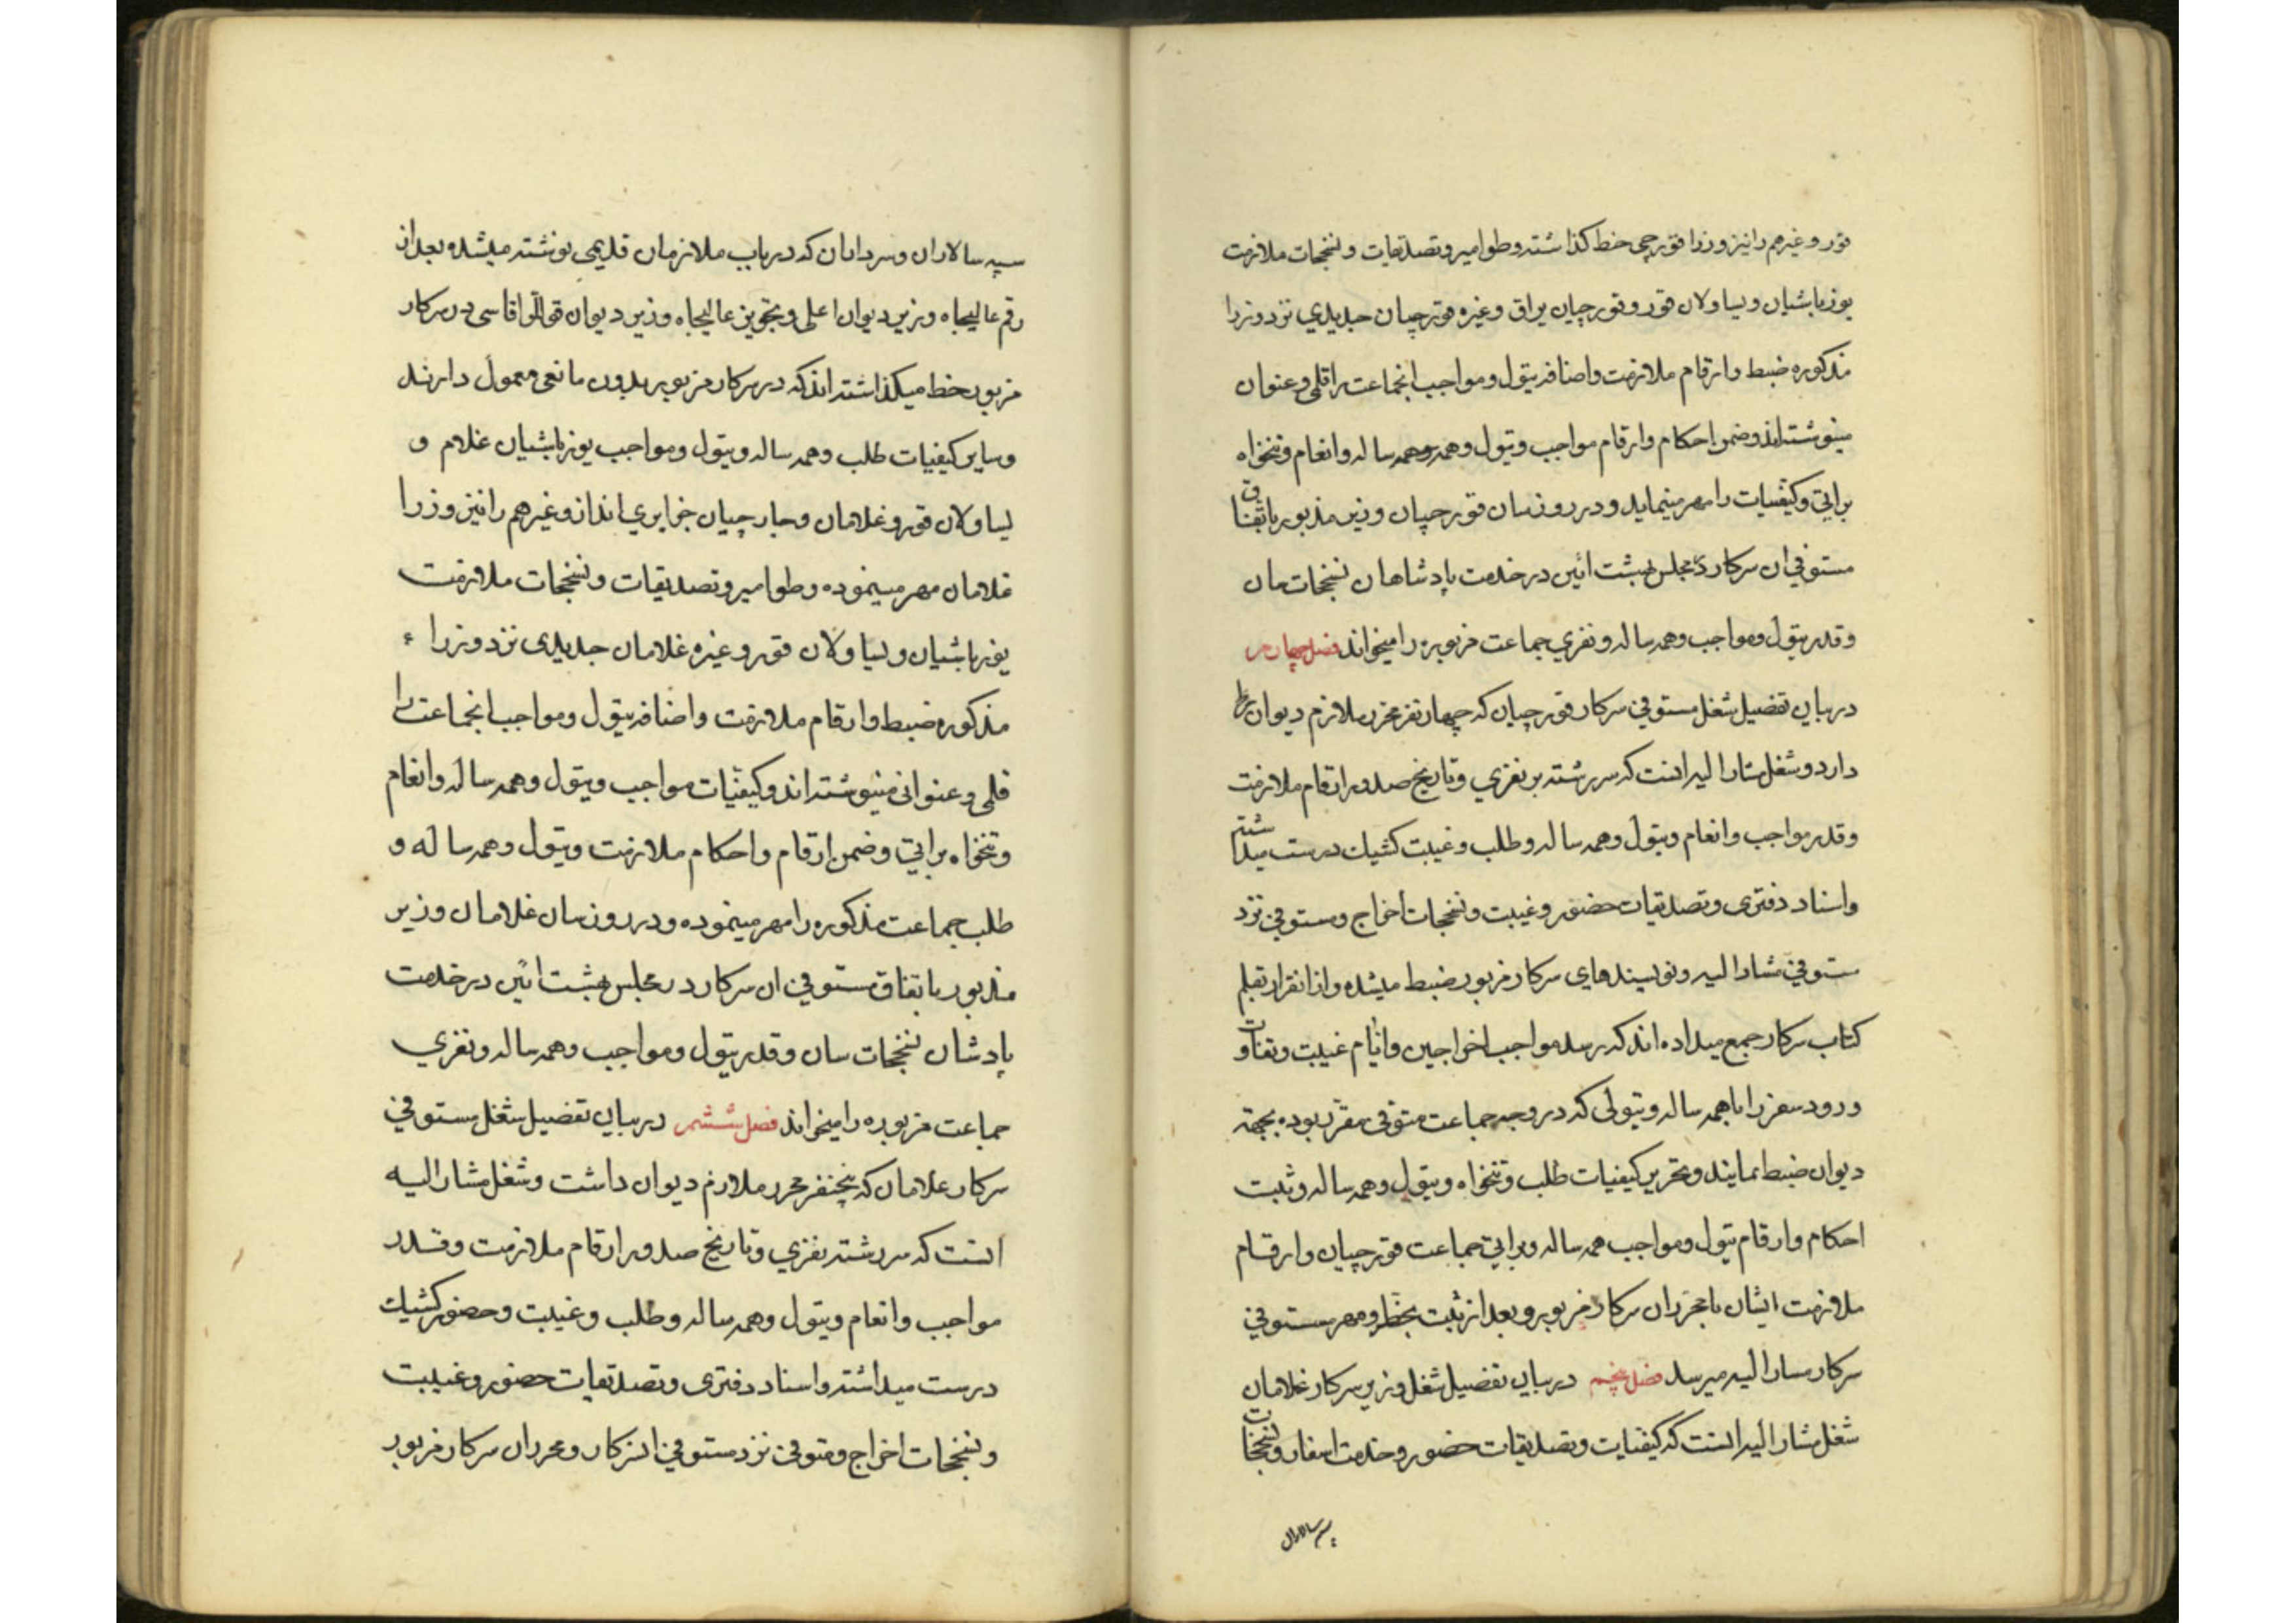 قور و غیرهم را نیز وزرا قورچی خط گذاشته و طوامیر و تصدیقات و نسخجات ملازمت
یوزباشیان و یساولان قور و قورچیان یراق و غیره قورچیان جدیدی نزد وزرا
مذکوره ضبط و ارقام ملازمت و اضافه تیول و مواجب انجماعت را قلمی و عنوان
مینوشته‌اند و ضمن احکام و ارقام مواجب و تیول و همه و همه ساله و انعام و تنخواه
براتی و کیفیات را مهر مینماید و در روز سان قورچیان وزیر مذبور باتفاق
مستوفی ان سرکار در مجلس بهشت ائین در خدمت پادشاهان نسخجات سان
و قدر تیول و مواجب و همه ساله و نفری جماعت مزبوره را میخواند فصل چهارم
در بیان تفصیل شغل مستوفی سرکار قورچیان که چهار نفر محرر ملازم دیوان
دارد و شغل مشارالیه اینست که سررشته بر نفری و تاریخ صدور ارقام ملازمت
و قدر مواجب و انعام و تیول و همه ساله و طلب و غیبت کشیک درست میداشته
و اسناد دفتری و تصدیقات حضور و غیبت و نسخجات اخراج و متوفی نزد
مستوفی مشارالیه و نویسندهای سرکار مزبور ضبط میشده و از انقرار بقلم
کتاب سرکار جمع میداده‌اند که رسد مواجب اخراجین و ایام غیبت و تفاوت
ورود سفر را با همه ساله و تیولی که در وجه جماعت متوفی مقرر بوده بجهة
دیوان ضبط نمایند و تحریر کیفیات طلب و تنخواه و تیول و همه ساله و ثبت
احکام و ارقام تیول و مواجب همه ساله و براتی جماعت قورچیان و ارقام
ملازمت ایشان با محرران سرکار مزبور و بعد از ثبت بخط و مهر مستوفی
سرکار مشارالیه میرسد فصل پنجم در بیان تفصیل شغل وزیر سرکار غلامان
شغل مشارالیه اینست که کیفیات و تصدیقات حضور و خدمت اسفار و نسخجات
سپه سالاران
سپه سالاران و سرداران که در باب ملازمان قدیمی نوشته میشده بعد از
رقم عالیجاه وزیر دیوان اعلی و تجویز عالیجاه وزیر دیوان قوللراقاسی در سرکار
مزبور خط میگذاشته‌اند که در سرکار مزبور بدون مانعی معمول دارند
و سایر کیفیات طلب و همه ساله و تیول و مواجب یوزباشیان غلام و
یساولان قور و غلامان و جارچیان جزایری انداز و غیرهم را نیز وزرا
غلامان مهر مینموده و طوامیر و تصدیقات و نسخجات ملازمت
یوزباشیان و یساولان قور و غیره غلامان جدیدی نزد وزراء
مذکوره ضبط و ارقام ملازمت و اضافه تیول و مواجب انجماعت را
قلمی و عنوانی مینوشته‌اند و کیفیات مواجب و تیول و همه ساله و انعام
و تنخواه براتی و ضمن ارقام و احکام ملازمت و تیول و همه ساله و
طلب جماعت مذکوره را مهر مینموده و در روز سان غلامان وزیر
مذبور باتفاق مستوفی ان سرکار در مجلس بهشت ائین در خدمت
پادشان نسخجات سان و قدر تیول و مواجب و همه ساله و نفری
جماعت مزبوره را میخواند فصل ششم در بیان تفصیل شغل مستوفی
سرکار غلامان که پنجنفر محرر ملازم دیوان داشت و شغل مشارالیه
اینست که سررشته نفری و تاریخ صدور ارقام ملازمت و قدر
مواجب و انعام و تیول و همه ساله و طلب و غیبت و حضور کشیک
درست میداشته و اسناد دفتری و تصدیقات حضور و غیبت
و نسخجات اخراج و متوفی نزد مستوفی و محرران سرکار مزبور